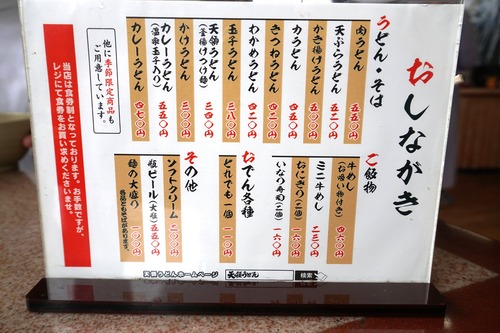 おしながき
うどん・そば
肉うどん 五五〇円
天ぷらうどん 五五〇円
かき揚げうどん 五〇〇円
力うどん 四五〇円
きつねうどん 四二〇円
わかめうどん 四二〇円
玉子うどん 三八〇円
天領うどん 三四〇円
(釜揚げつけ麺)
かけうどん 三〇〇円
カレーうどん 五五〇円
(温泉玉子入り)
カレーうどん 四七〇円
他に季節限定商品も
ご用意しています。
ご飯物
牛めし 四六〇円
(お吸い物付き)
ミニ牛めし 二三〇円
おにぎり(二個) 一六〇円
いなり寿司(二個) 一六〇円
おでん各種
どれでも一個 一〇〇円
その他
ソフトクリーム 二〇〇円
瓶ビール(大瓶) 五五〇円
麺の大盛り 一〇〇円
各品ともそばがあります。
当店は食券制となっております。お手数ですが、
レジにて食券をお買い求めくださいませ。
天領うどんホームページ 天領うどん 検索